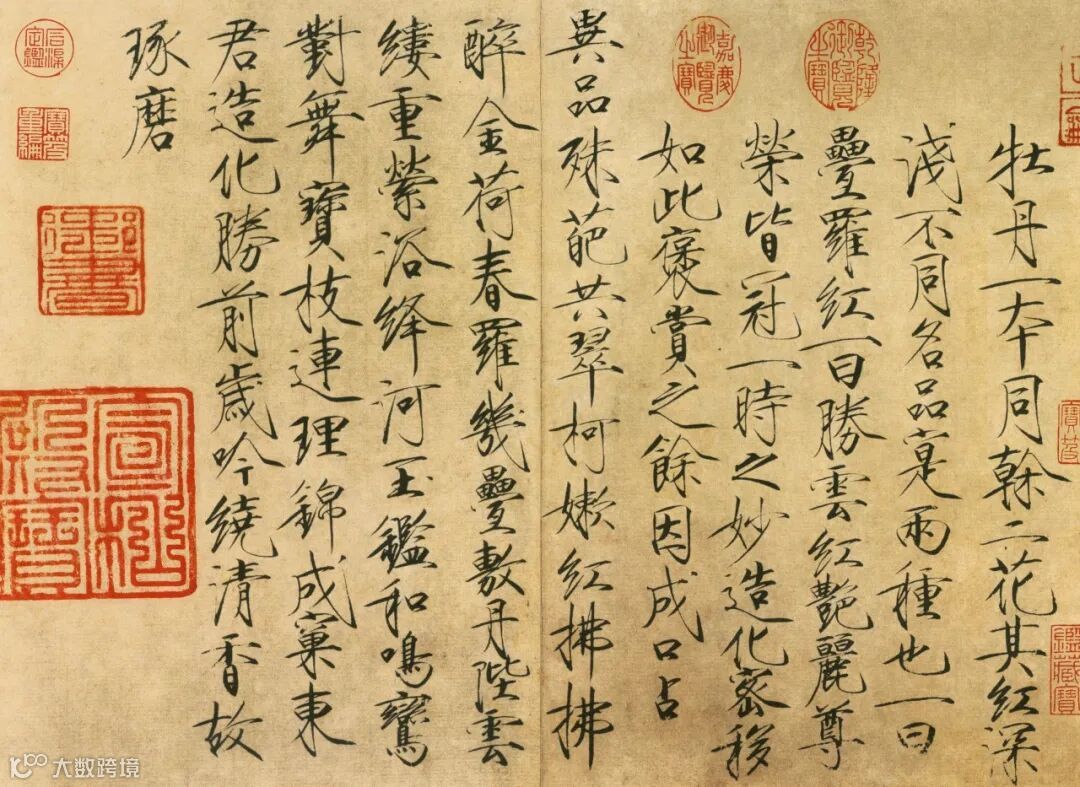 牡丹一本同幹二花其紅深
淺不同名品寔兩種也一曰
疊羅紅一曰勝雲紅艷麗尊
榮皆冠一時之妙造化密移
如此褒賞之餘因成口占
異品殊葩共翠柯嫩紅拂拂
醉金荷春羅幾疊敷丹陛雲
縷重縈浴絳河玉鑑和鳴鸞
對舞寶枝連理錦成窠東
君造化勝前歲吟繞清香故
琢磨
乾隆御覽之寶
嘉慶御覽之寶
石渠定鑑
寶笈重編
寶笈
鑑藏寶
大数跨境